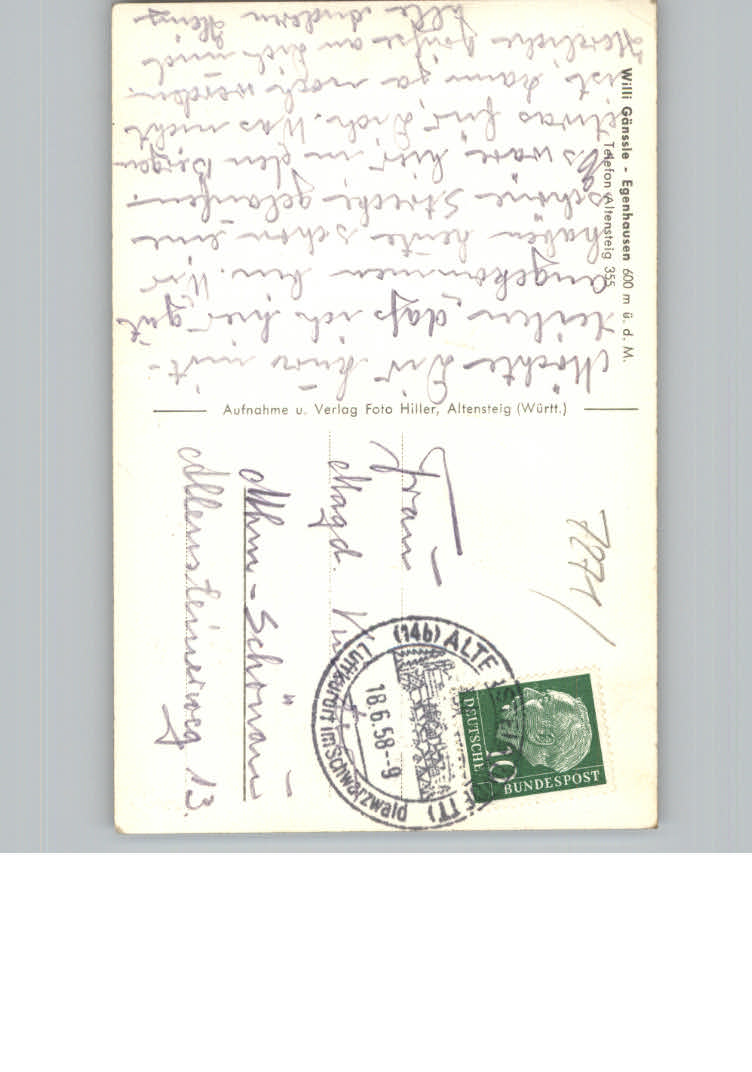 Willi Gänssle - Egenhausen 600 m ü. d. M.
Telefon Altensteig 355
Möchte Dir kurz mit-
teilen, daß ich hier gut
angekommen bin. Wir
haben heute schon eine
schöne Strecke gelaufen.
Es wäre hier in den Bergen
etwas für Dich. Was nicht
ist kann ja noch werden.
Herzliche Grüße an Dich und
alle andern
Aufnahme u. Verlag Foto Hiller, Altensteig (Württ.)
7271
Frau
Magd.
Ulm-Schönau
Allensteinerweg 13.
(14b) ALTENSTEIG (WÜRTT)
18.6.58-9
Luftkurort im Schwarzwald
DEUTSCHE
BUNDESPOST
10